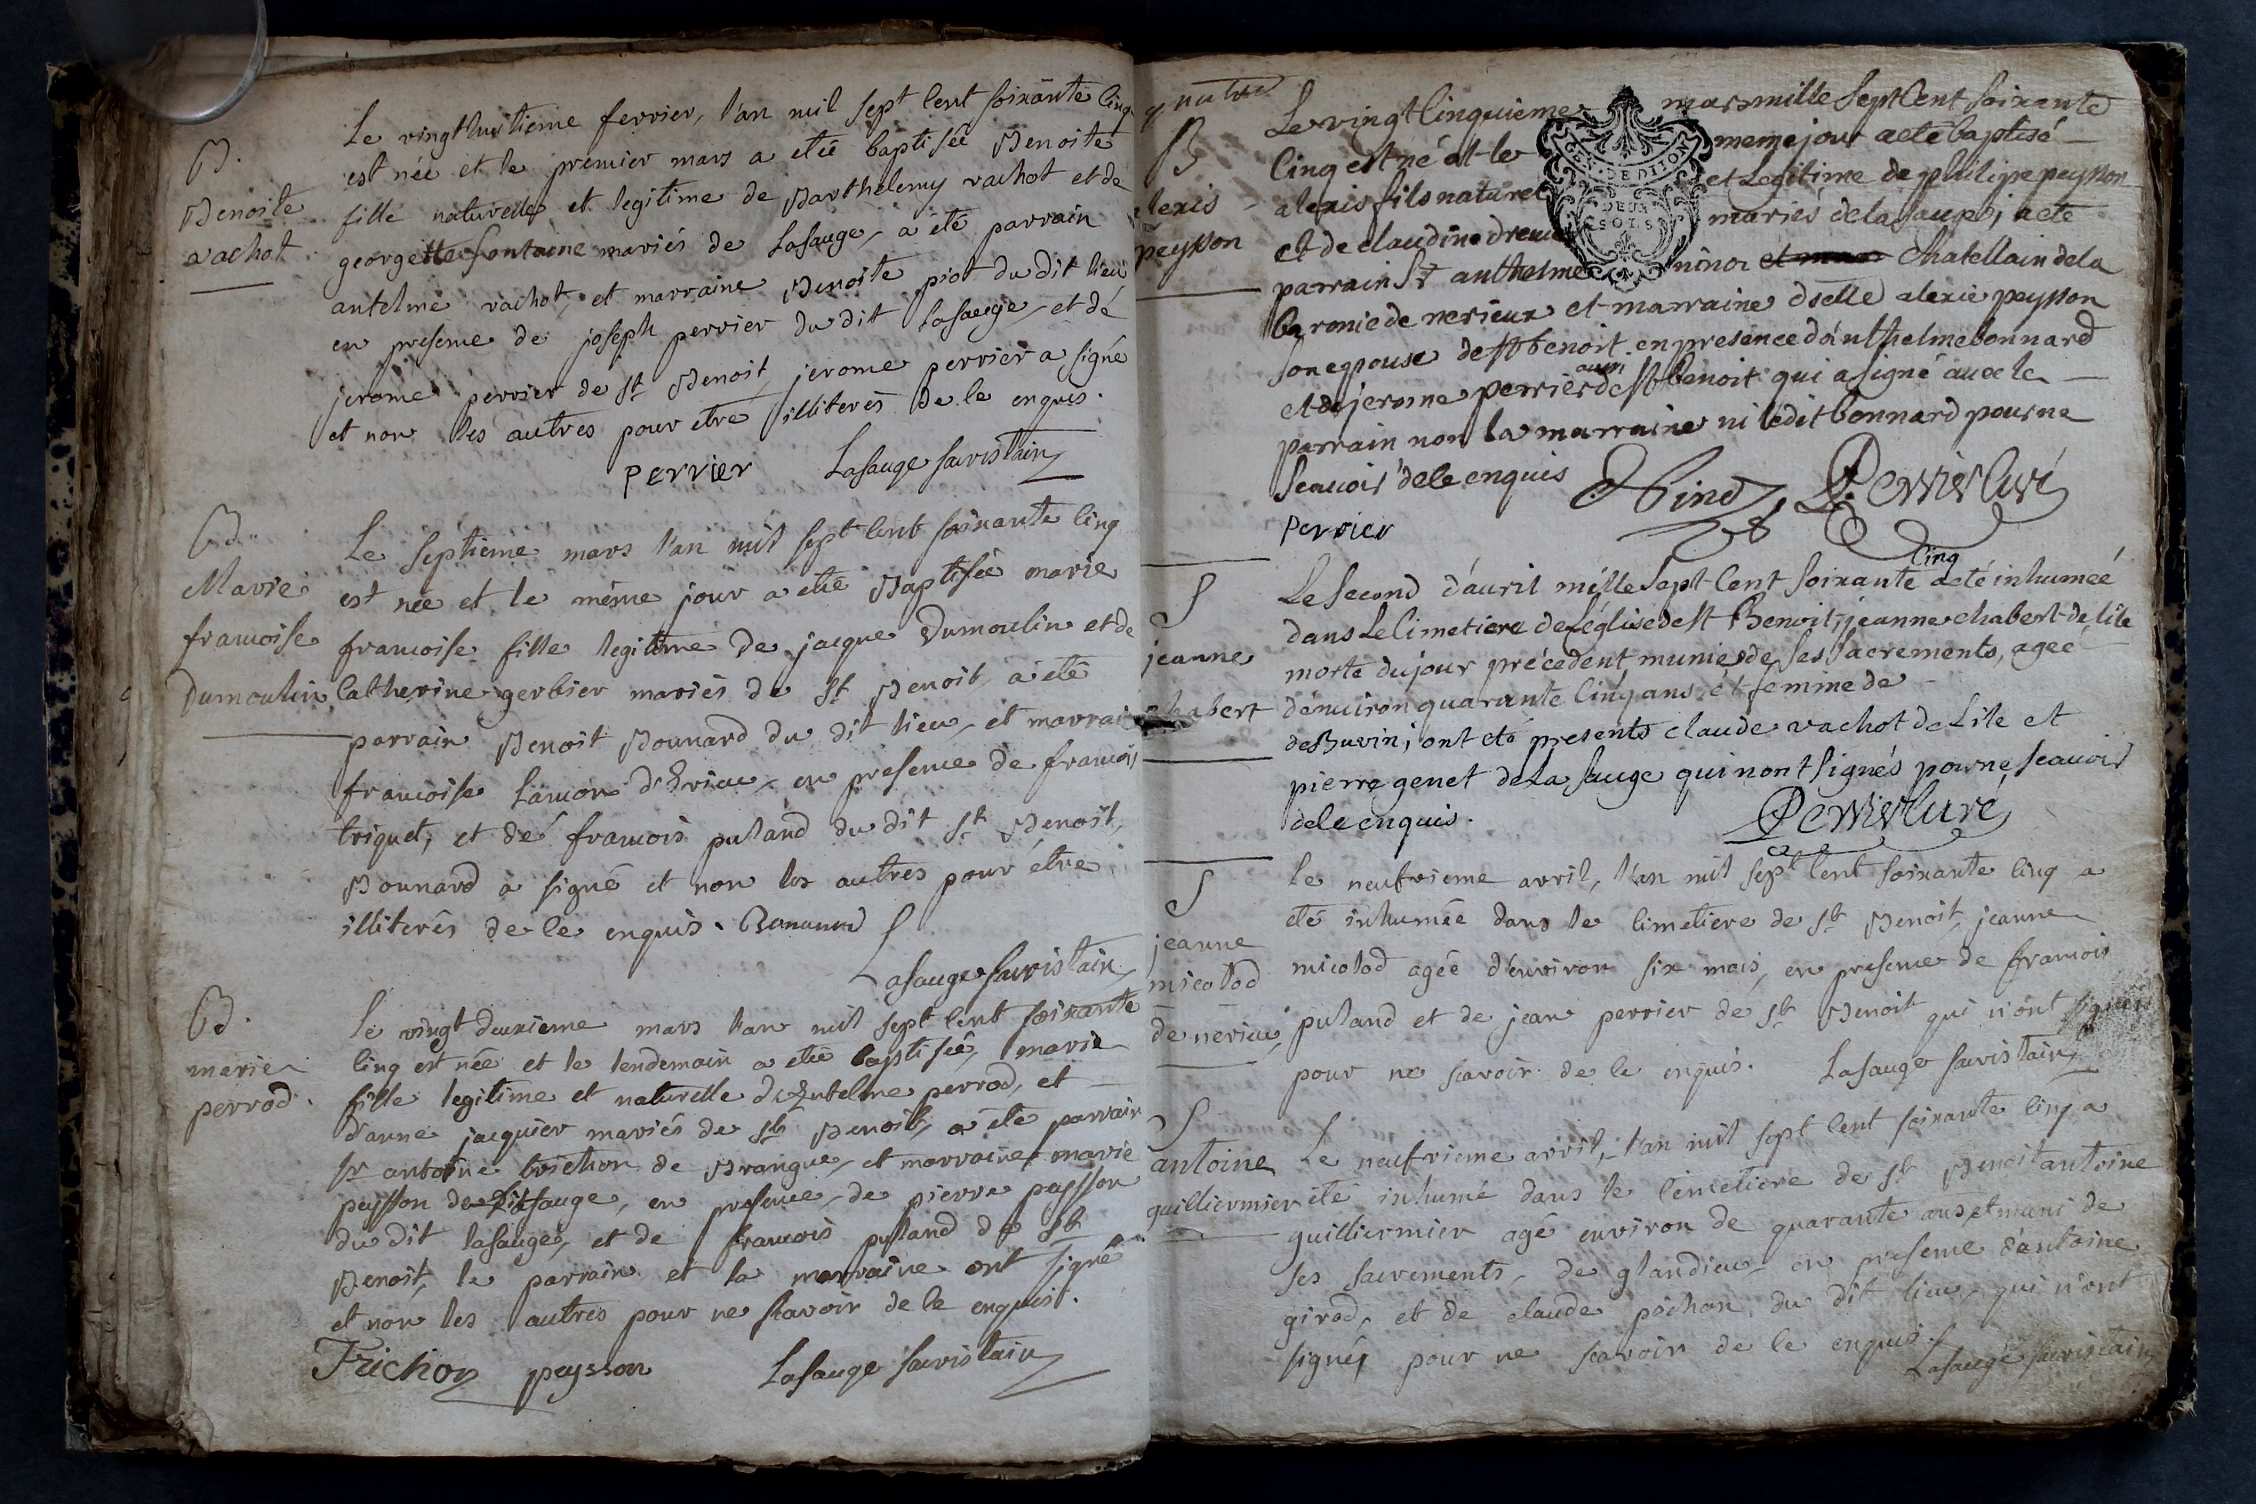 B.
Benoite
vachot
Le vingthuitieme fevrier, l'an mil sept cent soixante cinq
est née et le premier mars a etée baptisée Benoite
fille naturelle et legitime de Barthelemy vachot et de
georgette fontaine mariés de Lasauge, a été parrain
antelme vachot, et marraine Benoite piot du dit lieu
en presence de joseph perrier du dit Lasauge, et de
jerome perrier de st Benoit, jerome perrier a signé
et non les autres pour etre illiterés de le enquis.
perrier Lasauge sacristain
B.
Marie
francoise
Dumoulin
Le septieme mars l'an mil sept cent soixante cinq
est née et le même jour a eté Baptisée marie
francoise fille legitime de jacque Dumoulin et de
Catherine gerbier mariés de st Benoit, a été
parrain Benoit Bounard du dit lieu, et marrai
francoise Lanon d'Evieu, en presence de francois
triquet, et de francois puland du dit st Benoit,
Bounard a signé et non les autres pour étre
illiterés de le enquis. Bonnard
Lasauge sacristain
B.
marie
perrod.
Le vingt deuxieme mars l'an mil sept cent soixante
cinq est née et le lendemain a etée baptisée, marie
fille legitime et naturelle d'Antelme perrod, et
d'anne jacquier mariés de st Benoit, a été parrain
sr antoine trichon de Brangue, et marraine marie
peysson de Lasauge, en presence de pierre peysson
du dit lasauge, et de francois puland de st
Benoit, le parrain et la marraine ont signé
et non les autres pour ne scavoir de le enquis.
Trichon peysson Lasauge sacristain
quatre
B
alexis
peysson
GEN. DE DIJON
DEUX
SOLS
Le vingt cinquieme mars mille sept cent soixante
cinq est né et le meme jour a eté baptisé
alexis fils naturel et legitime de philipe peysson
et de claudine drevet mariés de lasauge; a eté
parrain sr anthelme ninoz et mar chatellain de la
baronie de nerieux et marraine dselle alexie peysson
son epouse de st benoit en presence d'anthelme bonnard
et de jerosme perrier aussi de st benoit qui a signé avec le
parrain non la marraine ni ledit bonnard pour ne
scavoir de le enquis Ninoz Perrier Curé
perrier
S
jeanne
chabert
Le second d'avril mille sept cent soixante cinq a eté inhumeé
dans le cimetiere de l'église de st Benoit, jeanne chabert de lile
morte du jour précedent munie de ses sacrements, ageé
d'environ quarante cinq ans et femme de
de Buvin; ont eté presents claude vachot de Lile et
pierre genet de la sauge qui n'ont signés pour ne scavoir
de le enquis. Perrier curé
S
jeanne
micolod
de nerieu
Le neufvieme avril, l'an mil sept cent soixante cinq a
eté inhumée dans le cimetiere de st Benoit, jeanne
micolod agée d'environ six mois, en presence de francois
puland et de jean perrier de st Benoit qui n'ont signer
pour ne scavoir de le enquis. Lasauge sacristain
S
antoine
guilliermier
Le neufvieme avril, l'an mil sept cent soixante cinq a
été inhumé dans le cemetiere de st Benoit antoine
guilliermier agé environ de quarante ans, et muni de
ses sacrements, de glandieu en presence d'antoine
girod, et de claude pochon du dit lieu, qui n'ont
signés pour ne scavoir de le enquis.
Lasauge sacristain